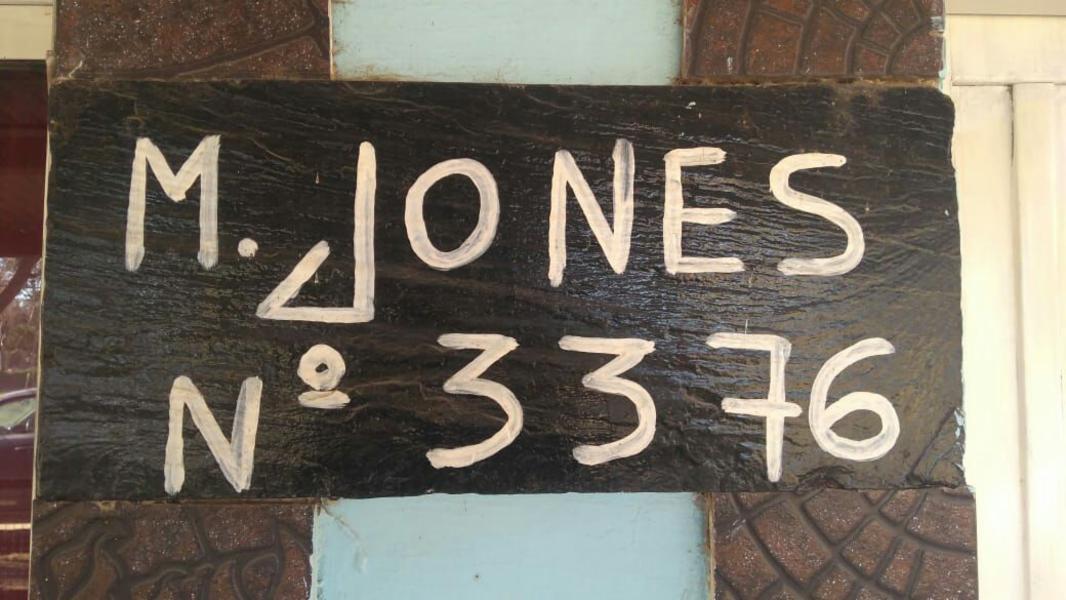 M. JONES
Nº 3376